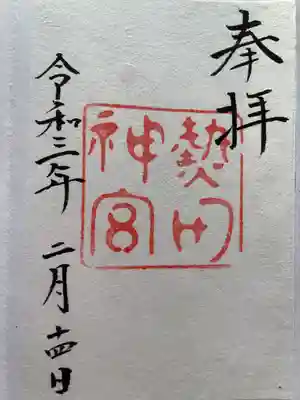 奉拝
熱田
神宮
令和三年 二月 十四日